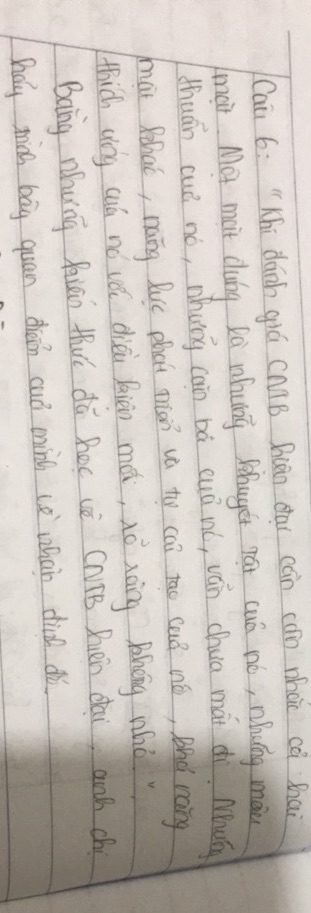 Câu 6: "Khi đánh giá CNTB hiện đại cần cân nhắc cả hai
mặt. Một mặt đúng là những khuyết tật của nó, những mâu
thuẫn của nó, những căn bã của nó, vẫn chưa mất đi. Nhưng
mặt khác, năng lực phát triển và tự cải tạo của nó, khả năng
thích ứng của nó với điều kiện mới, rõ ràng không nhỏ."
Bằng những kiến thức đã học về CNTB hiện đại, anh chị
hãy trình bày quan điểm của mình về nhận định đó.